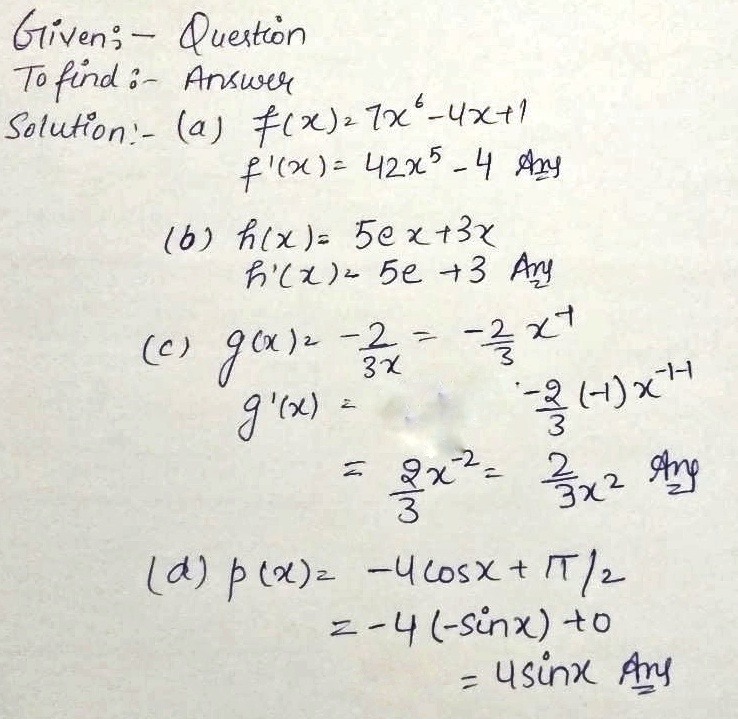 Given:- Question
To find:- Answer
Solution:- (a) f(x)= 7x⁶-4x+1
f'(x)= 42x⁵-4 Ans
(b) h(x)= 5ex+3x
h'(x)= 5e+3 Ans
(c) g(x)= -2/3x = -2/3 x⁻¹
g'(x) = -2/3 (-1)x⁻¹⁻¹
= 2/3 x⁻² = 2/3x² Ans
(d) p(x)= -4cosx+π/2
= -4(-sinx)+0
= 4sinx Ans